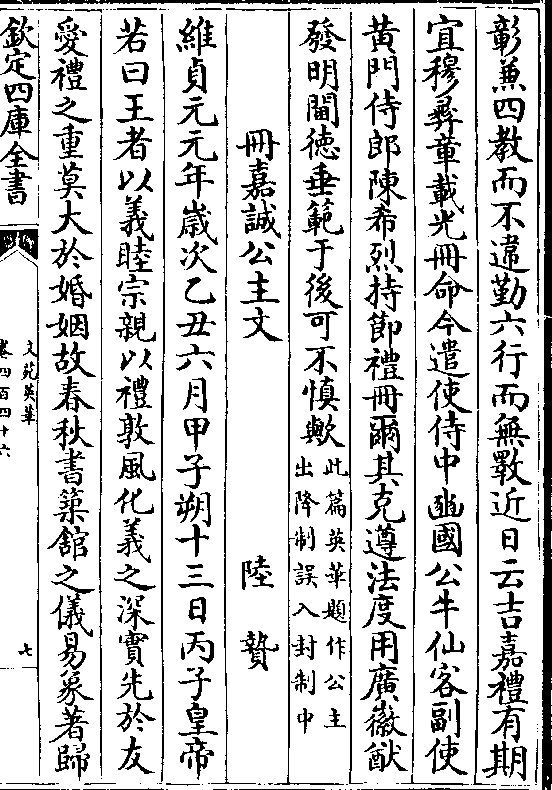 彰兼四教而不違勤六行而無斁近日云吉嘉禮有期
宜穆彞章載光冊命今遣使侍中豳國公牛仙客副使
黃門侍郎陳希烈持節禮冊爾其克遵法度用廣徽猷
發明閫徳垂範于後可不慎歟此篇英華題作公主
出降制誤入封制中
冊嘉誠公主文 陸贄
維貞元元年歲次乙丑六月甲子朔十三日丙子皇帝
若曰王者以義睦宗親以禮敦風化義之深實先於友
愛禮之重莫大於婚姻故春秋書築舘之儀易象著歸
欽定四庫全書
文苑英華
卷四百四十六
七